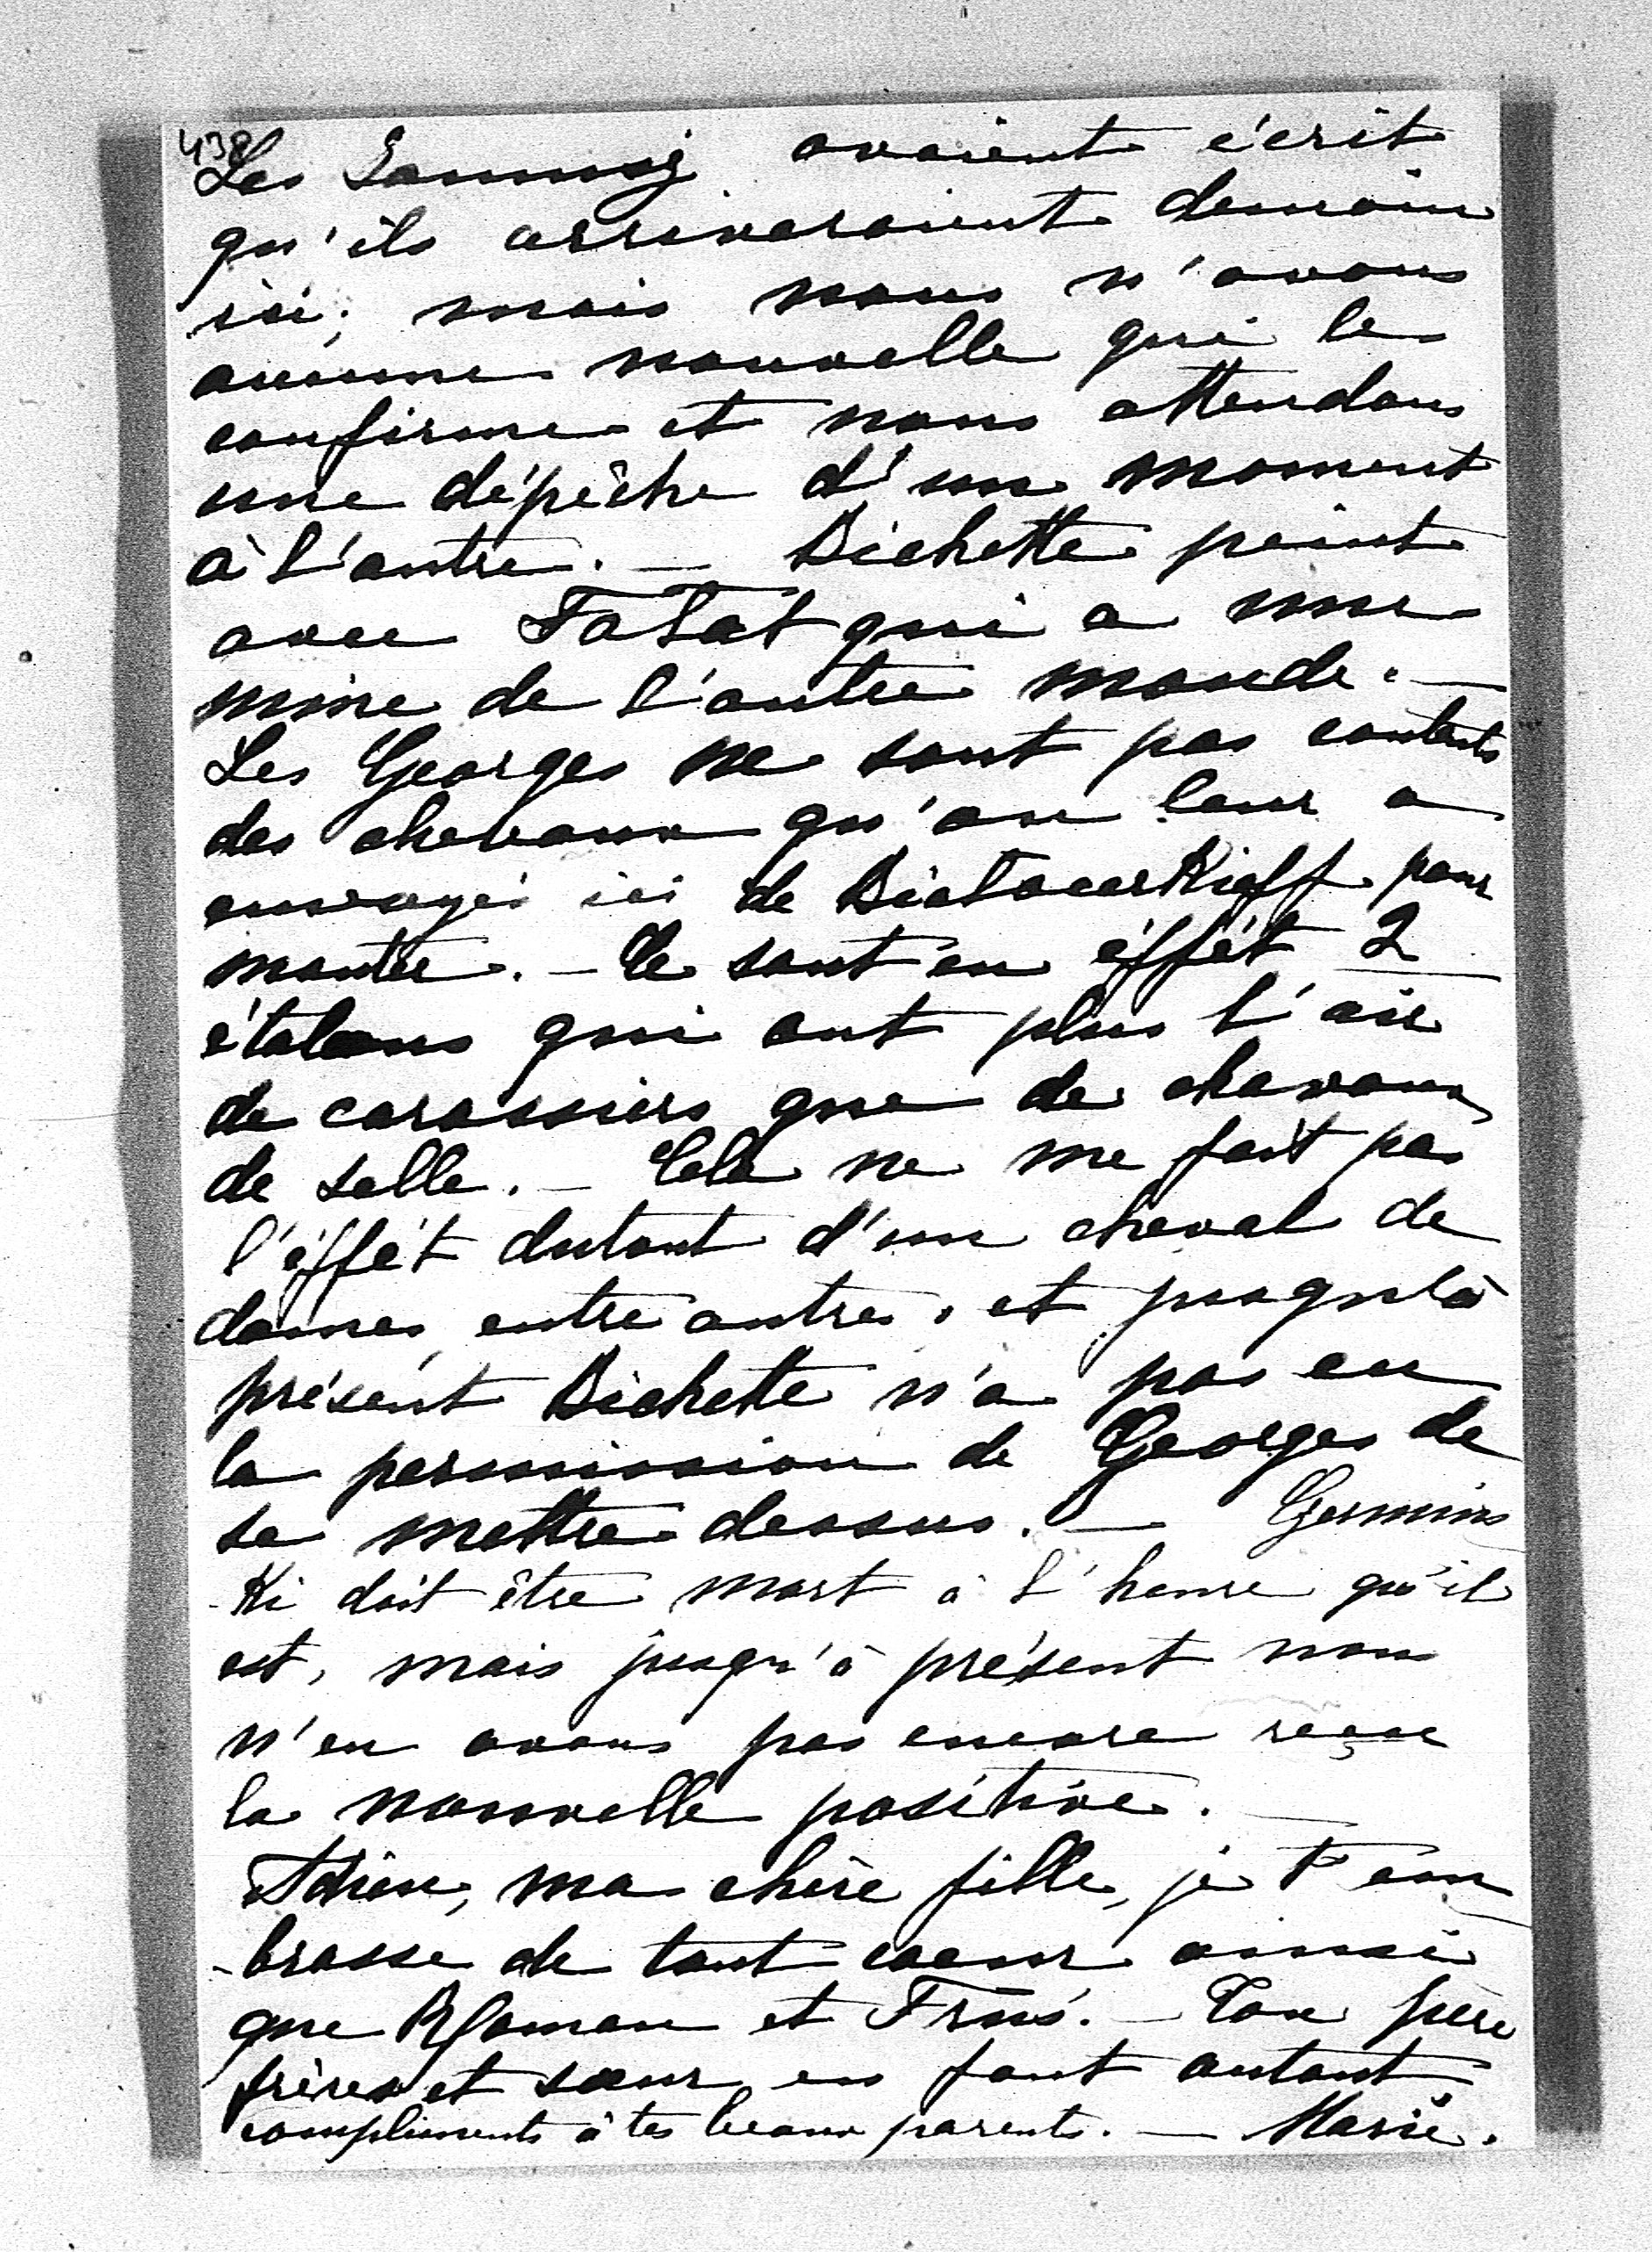 438
Les avaient écrit
qu'ils arriveraient demain
ici; mais nous n'avons
aucune nouvelle qui le
confirme et nous attendons
une dépêche d'un moment
à l'autre. — Bichette peint
avec Fatat qui a une
mine de l'autre monde. —
Les Georges ne sont pas contents
des chevaux qu'on leur a
envoyés ici de pour
monter. — Ce sont en éffét 2
étalons qui ont plus l'air
de carossiers que de chevaux
de selle. — Cela ne me fait pas
l'éffét dutout d'un cheval de
dames entre autres, et jusqu'à
présent Bichette n'a pas eu
la permission de Georges de
se mettre dessus. — Germins
-ki doit être mort à l'heure qu'il
est, mais jusqu'à présent nous
n'en avons pas encore reçu
la nouvelle positive. —
Adieu, ma chère fille, je t'em
-brasse de tout coeur ainsi
que Roman et — Ton père
frères et soeur en font autant
compliments à tes beaux parents. — Marie.